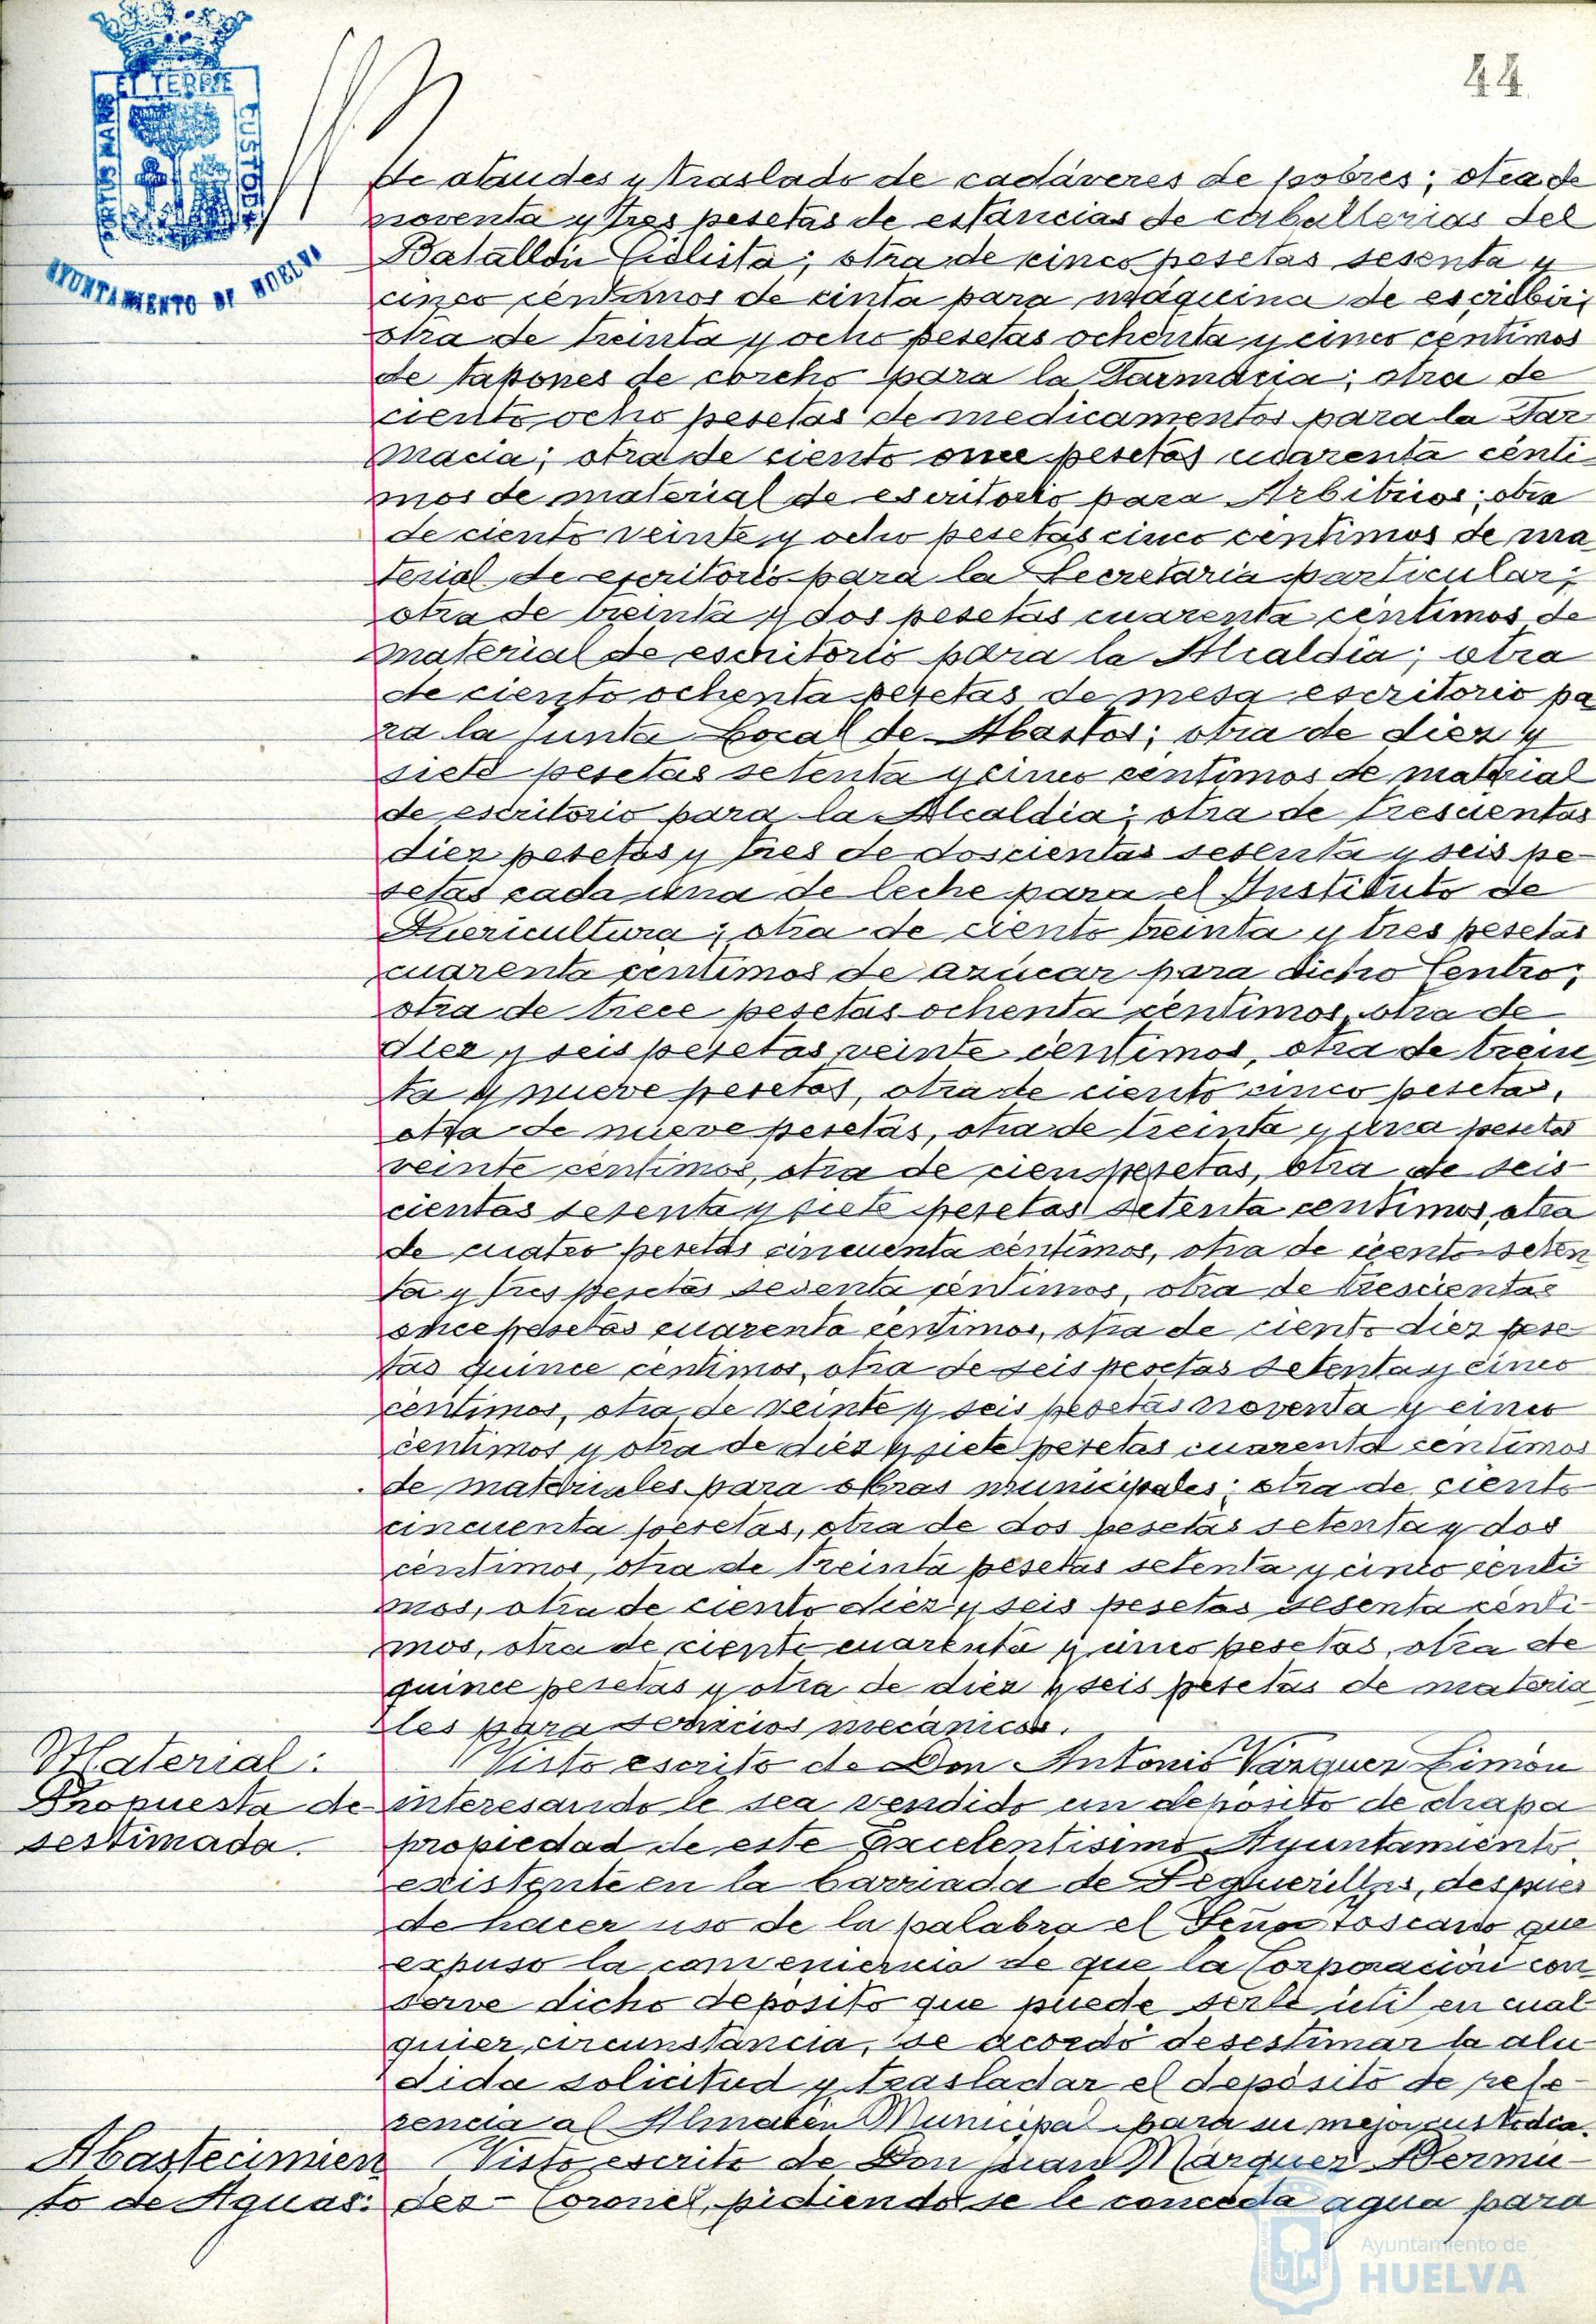 44
PORTUS MARIS
ET TERRE
CUSTODI
AYUNTAMIENTO DE HUELVA
de ataudes y traslado de cadáveres de pobres; otra de
noventa y tres pesetas de estancias de caballerias del
Batallón Ciclista; otra de cinco pesetas sesenta y
cinco céntimos de cinta para máquina de escribir;
otra de treinta y ocho pesetas ochenta y cinco centimos
de tapones de corcho para la Farmacia; otra de
ciento ocho pesetas de medicamentos para la Far
macia; otra de ciento once pesetas cuarenta cénti
mos de material de escritorio para Arbitrios; otra
de ciento veinte y ocho pesetas cinco centimos de ma
terial de escritorio para la Secretaria particular;
otra de treinta y dos pesetas cuarenta centimos de
material de escritorio para la Alcaldia; otra
de ciento ochenta pesetas de mesa escritorio pa
ra la Junta Local de Abastos; otra de diez y
siete pesetas setenta y cinco centimos de material
de escritorio para la Alcaldia; otra de trescientas
diez pesetas y tres de doscientas sesenta y seis pe-
setas cada una de leche para el Instituto de
Puericultura; otra de ciento treinta y tres pesetas
cuarenta centimos de azúcar para dicho Centro;
otra de trece pesetas ochenta céntimos, otra de
diez y seis pesetas veinte centimos, otra de trein
ta y nueve pesetas, otra de ciento cinco pesetas,
otra de nueve pesetas, otra de treinta y una pesetas
veinte centimos, otra de cien pesetas, otra de seis
cientas sesenta y siete pesetas setenta centimos, otra
de cuatro pesetas cincuenta centimos, otra de ciento seten
ta y tres pesetas sesenta centimos, otra de trescientas
once pesetas cuarenta centimos, otra de ciento diez pese
tas quince centimos, otra de seis pesetas setenta y cinco
centimos, otra de veinte y seis pesetas noventa y cinco
centimos y otra de diez y siete pesetas cuarenta centimos
de materiales para obras municipales; otra de ciento
cincuenta pesetas, otra de dos pesetas setenta y dos
céntimos, otra de treinta pesetas setenta y cinco centi
mos, otra de ciento diez y seis pesetas sesenta cénti-
mos, otra de ciento cuarenta y cinco pesetas, otra de
quince pesetas y otra de diez y seis pesetas de materia
les para servicios mecánicos.
Material:
Propuesta de
sestimada.
Visto escrito de Don Antonio Vazquez Limón
interesando le sea vendido un deposito de chapa
propiedad de este Excelentisimo Ayuntamiento
existente en la barriada de Peguerillas, despues
de hacer uso de la palabra el Señor Toscano que
expuso la conveniencia de que la Corporación con
serve dicho deposito que puede serle útil en cual
quier circunstancia, se acordó desestimar la alu
dida solicitud y trasladar el depósito de refe-
rencia al Almacén Municipal para su mejor custodia.
Abastecimien
to de Aguas:
Visto escrito de Don Juan Márquez Bermu-
dez-Coronel, pidiendo se le conceda agua para
Ayuntamiento de
HUELVA